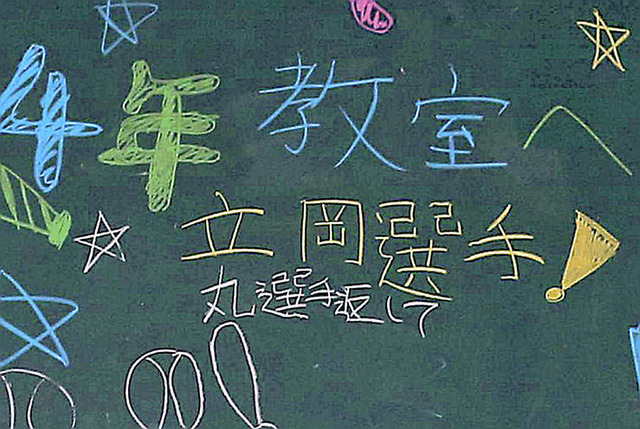 4年教室へ
立岡選手!
丸選手返して